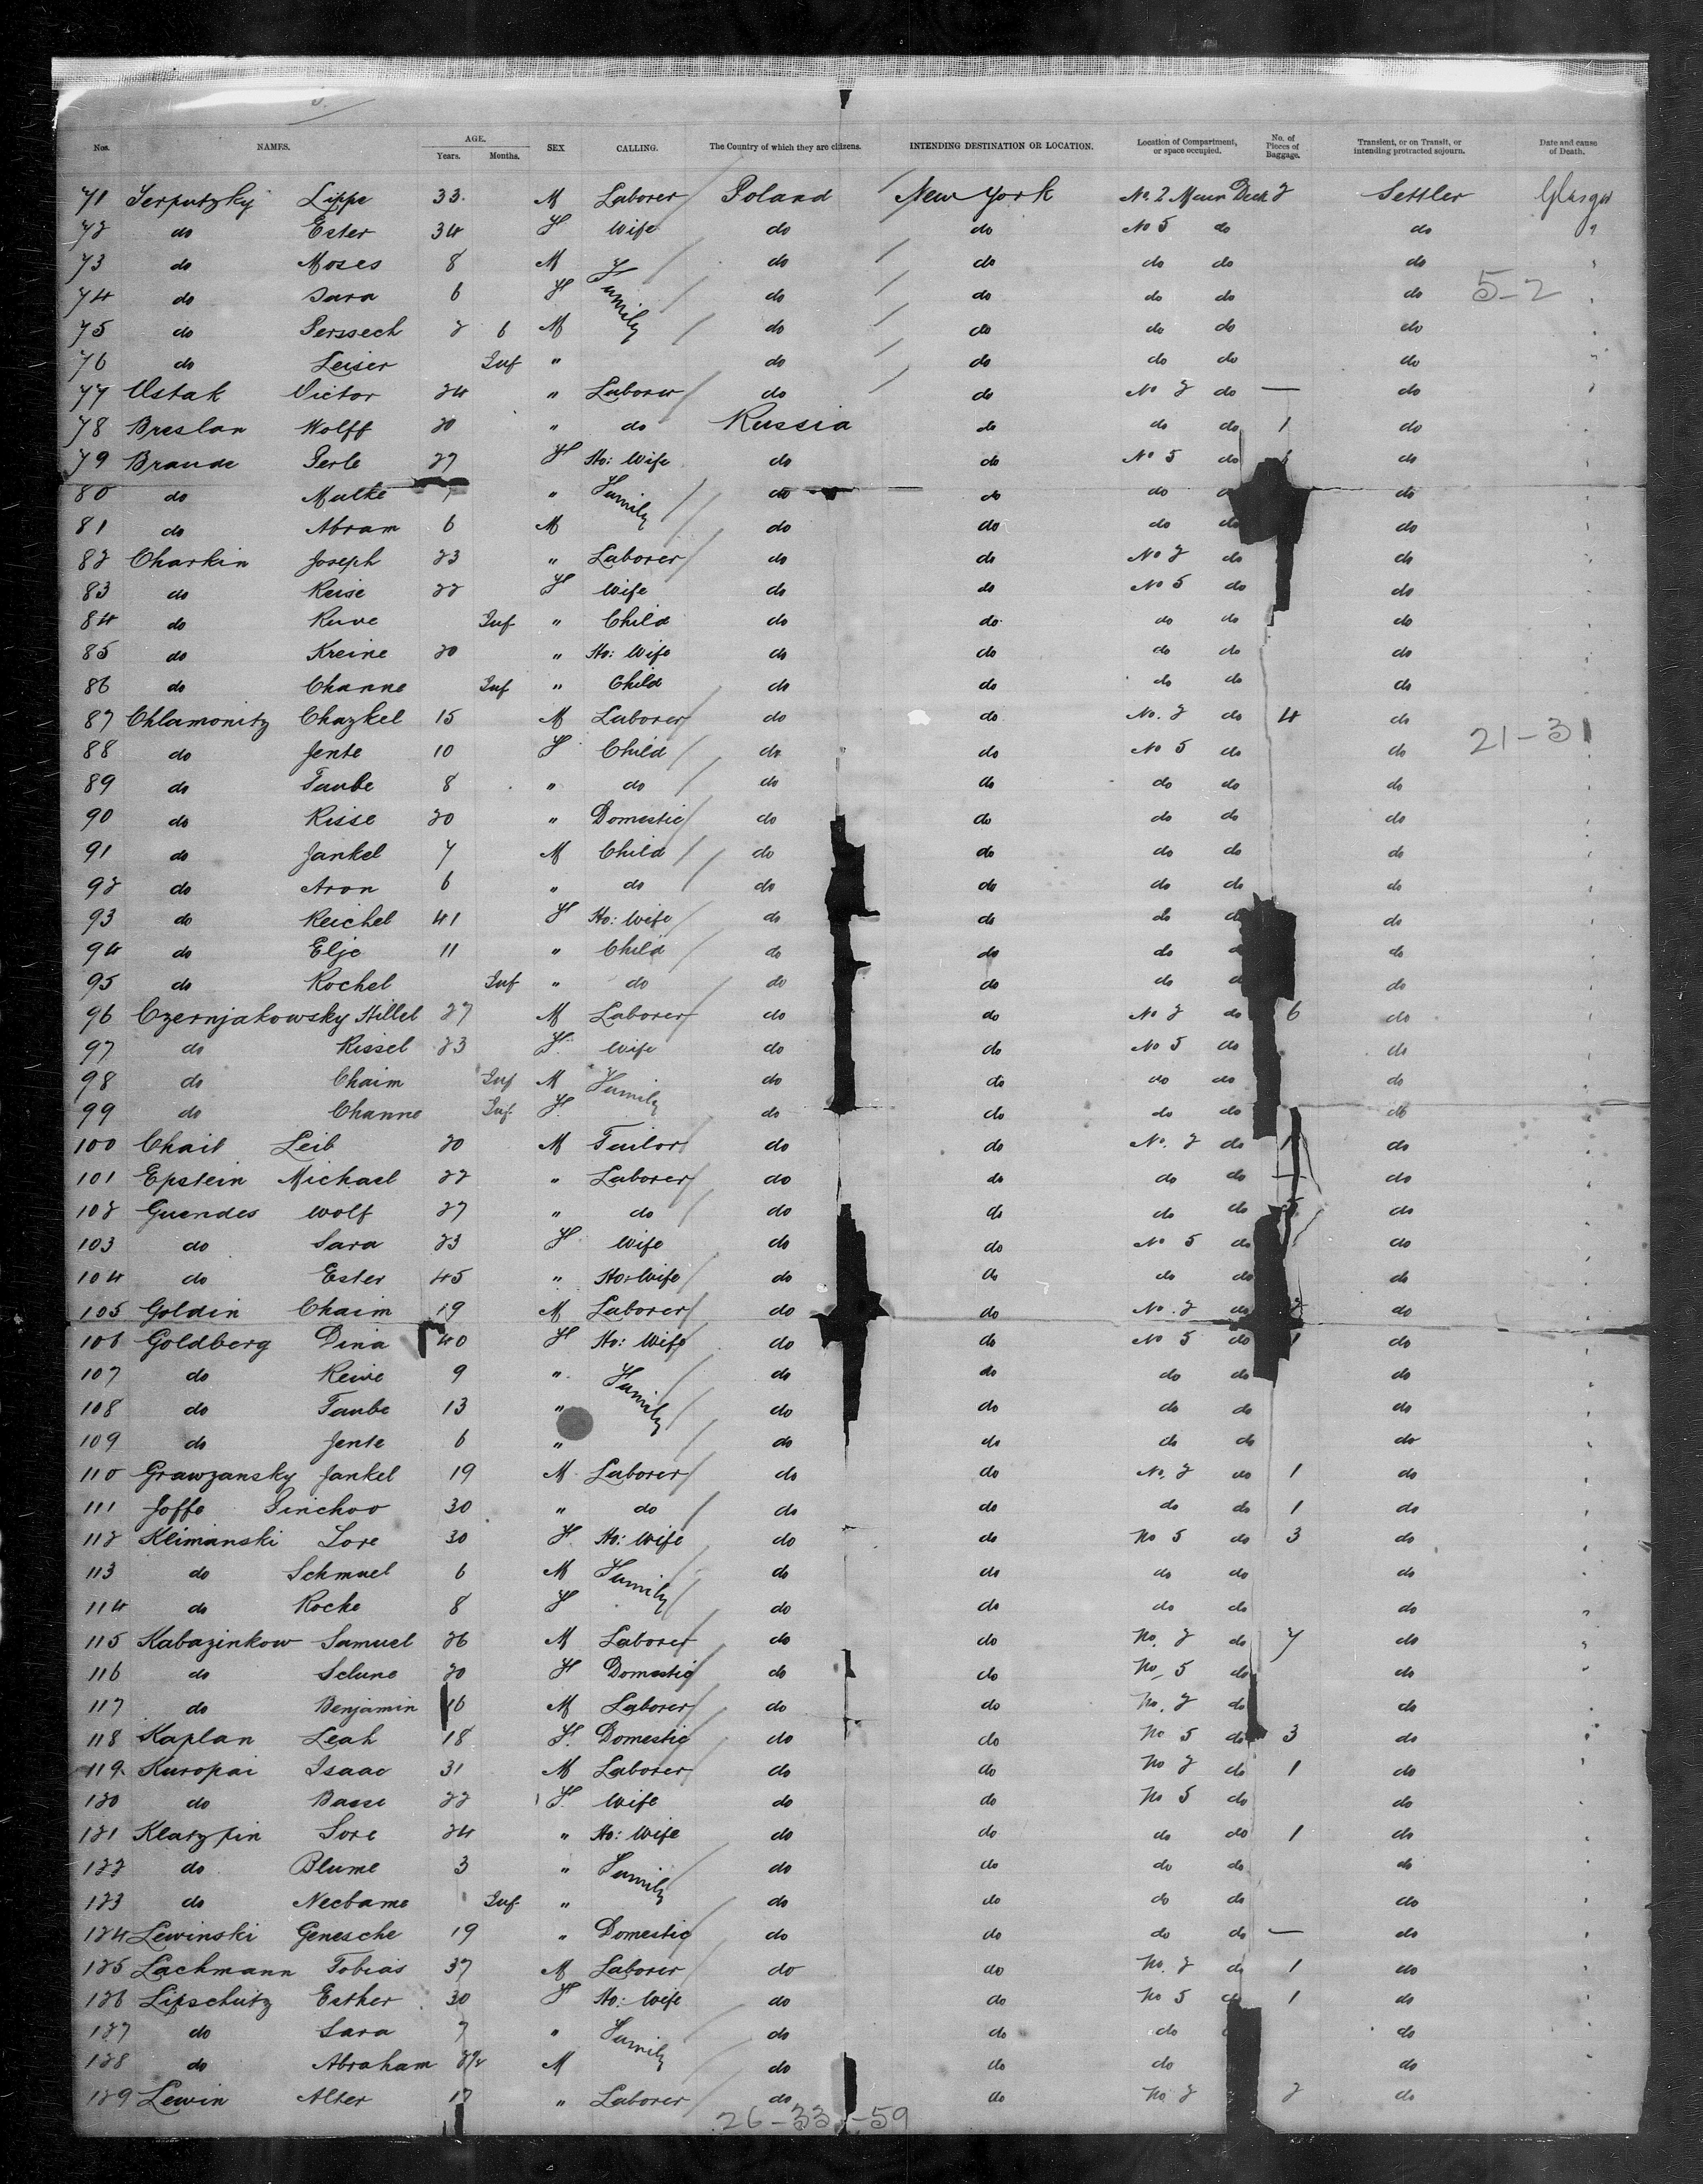 Nos. NAMES. AGE. Years. Months. SEX CALLING. The Country of which they are citizens. INTENDING DESTINATION OR LOCATION. Location of Compartment, or space occupied. No. of Pieces of Baggage. Transient, or on Transit, or intending protracted sojourn. Date and cause of Death.
71 Lippe 33 M Laborer Poland New York No. 2 Main Deck 2 Settler Glasgow
72 do Ester 34 F Wife do do No 5 do do "
73 do Moses 8 M Family do do do do do
74 do Sara 6 F do do do do do 5-2
75 do Perssech 2 6 M do do do do do
76 do Leiser Inf " do do do do do
77 Ustak Victor 24 " Laborer do do No 2 do — do
78 Breslan Wolff 20 " do Russia do do do 1 do
79 Braude Perle 27 F Ho: Wife do do No 5 do do
80 do Malke " Family do do do do
81 do Abram 6 M do do do do do
82 Charkin Joseph 23 " Laborer do do No 2 do do
83 do Reise 22 F Wife do do No 5 do do
84 do Ruve Inf " Child do do do do do
85 do Kreine 20 " Ho: Wife do do do do do
86 do Channe Inf " Child do do do do do
87 Chlamonitz Chazkel 15 M Laborer do do No. 2 do 4 do
88 do Jente 10 F Child do do No 5 do do 21-31
89 do Taube 8 " do do do do do do
90 do Risse 20 " Domestic do do do do do
91 do Jankel 7 M Child do do do do do
92 do Aron 6 " do do do do do do
93 do Reichel 41 F Ho: Wife do do do do do
94 do Elje 11 " Child do do do do
95 do Rochel Inf " do do do do do
96 Czernjakowsky Hillel 27 M Laborer do do No 2 do 6 do
97 do Rissel 23 F. Wife do do No 5 do do
98 do Chaim Inf M Family do do do do do
99 do Channe Inf F. do do do do do
100 Chait Leib 20 M Tailor do do No. 2 do 1 do
101 Epstein Michael 22 " Laborer do do do do — do
102 Guendes Wolf 27 " do do do do do 5 do
103 do Sara 23 F Wife do do No 5 do do
104 do Ester 45 " Ho: Wife do do do do do
105 Goldin Chaim 19 M Laborer do do No. 2 do 2 do
106 Goldberg Dina 40 F Ho: Wife do do No 5 do 1 do
107 do Reive 9 " Family do do do do do
108 do Taube 13 " do do do do do
109 do Jente 6 " do do do do do
110 Grawzansky Jankel 19 M Laborer do do No. 2 do 1 do
111 Joffe Pinchoo 30 " do do do do do 1 do
112 Klimanski Sore 30 F. Ho: Wife do do No 5 do 3 do
113 do Schmuel 6 M Family do do do do do
114 do Rocke 8 F do do do do do
115 Kabazinkow Samuel 26 M Laborer do do No. 2 do 7 do
116 do Selune 20 F Domestic do do No. 5 do do
117 do Benjamin 16 M Laborer do do No. 2 do do
118 Kaplan Leah 18 F. Domestic do do No 5 do 3 do
119 Kuropai Isaac 31 M Laborer do do No 2 do 1 do
120 do Basse 22 F. Wife do do No 5 do do
121 Klarzpin Sore 24 " Ho: Wife do do do do 1 do
122 do Blume 3 " Family do do do do do
123 do Necbame Inf " do do do do do
124 Lewinski Genesche 19 " Domestic do do do do — do
125 Lachmann Tobias 37 M Laborer do do No. 2 do 1 do
126 Lipschutz Esther 30 F Ho: Wife do do No 5 do 1 do
127 do Sara 7 " Family do do do do
128 do Abraham M do do do do
129 Lewin Alter 17 " Laborer do do No 2 2 do
26-33-59